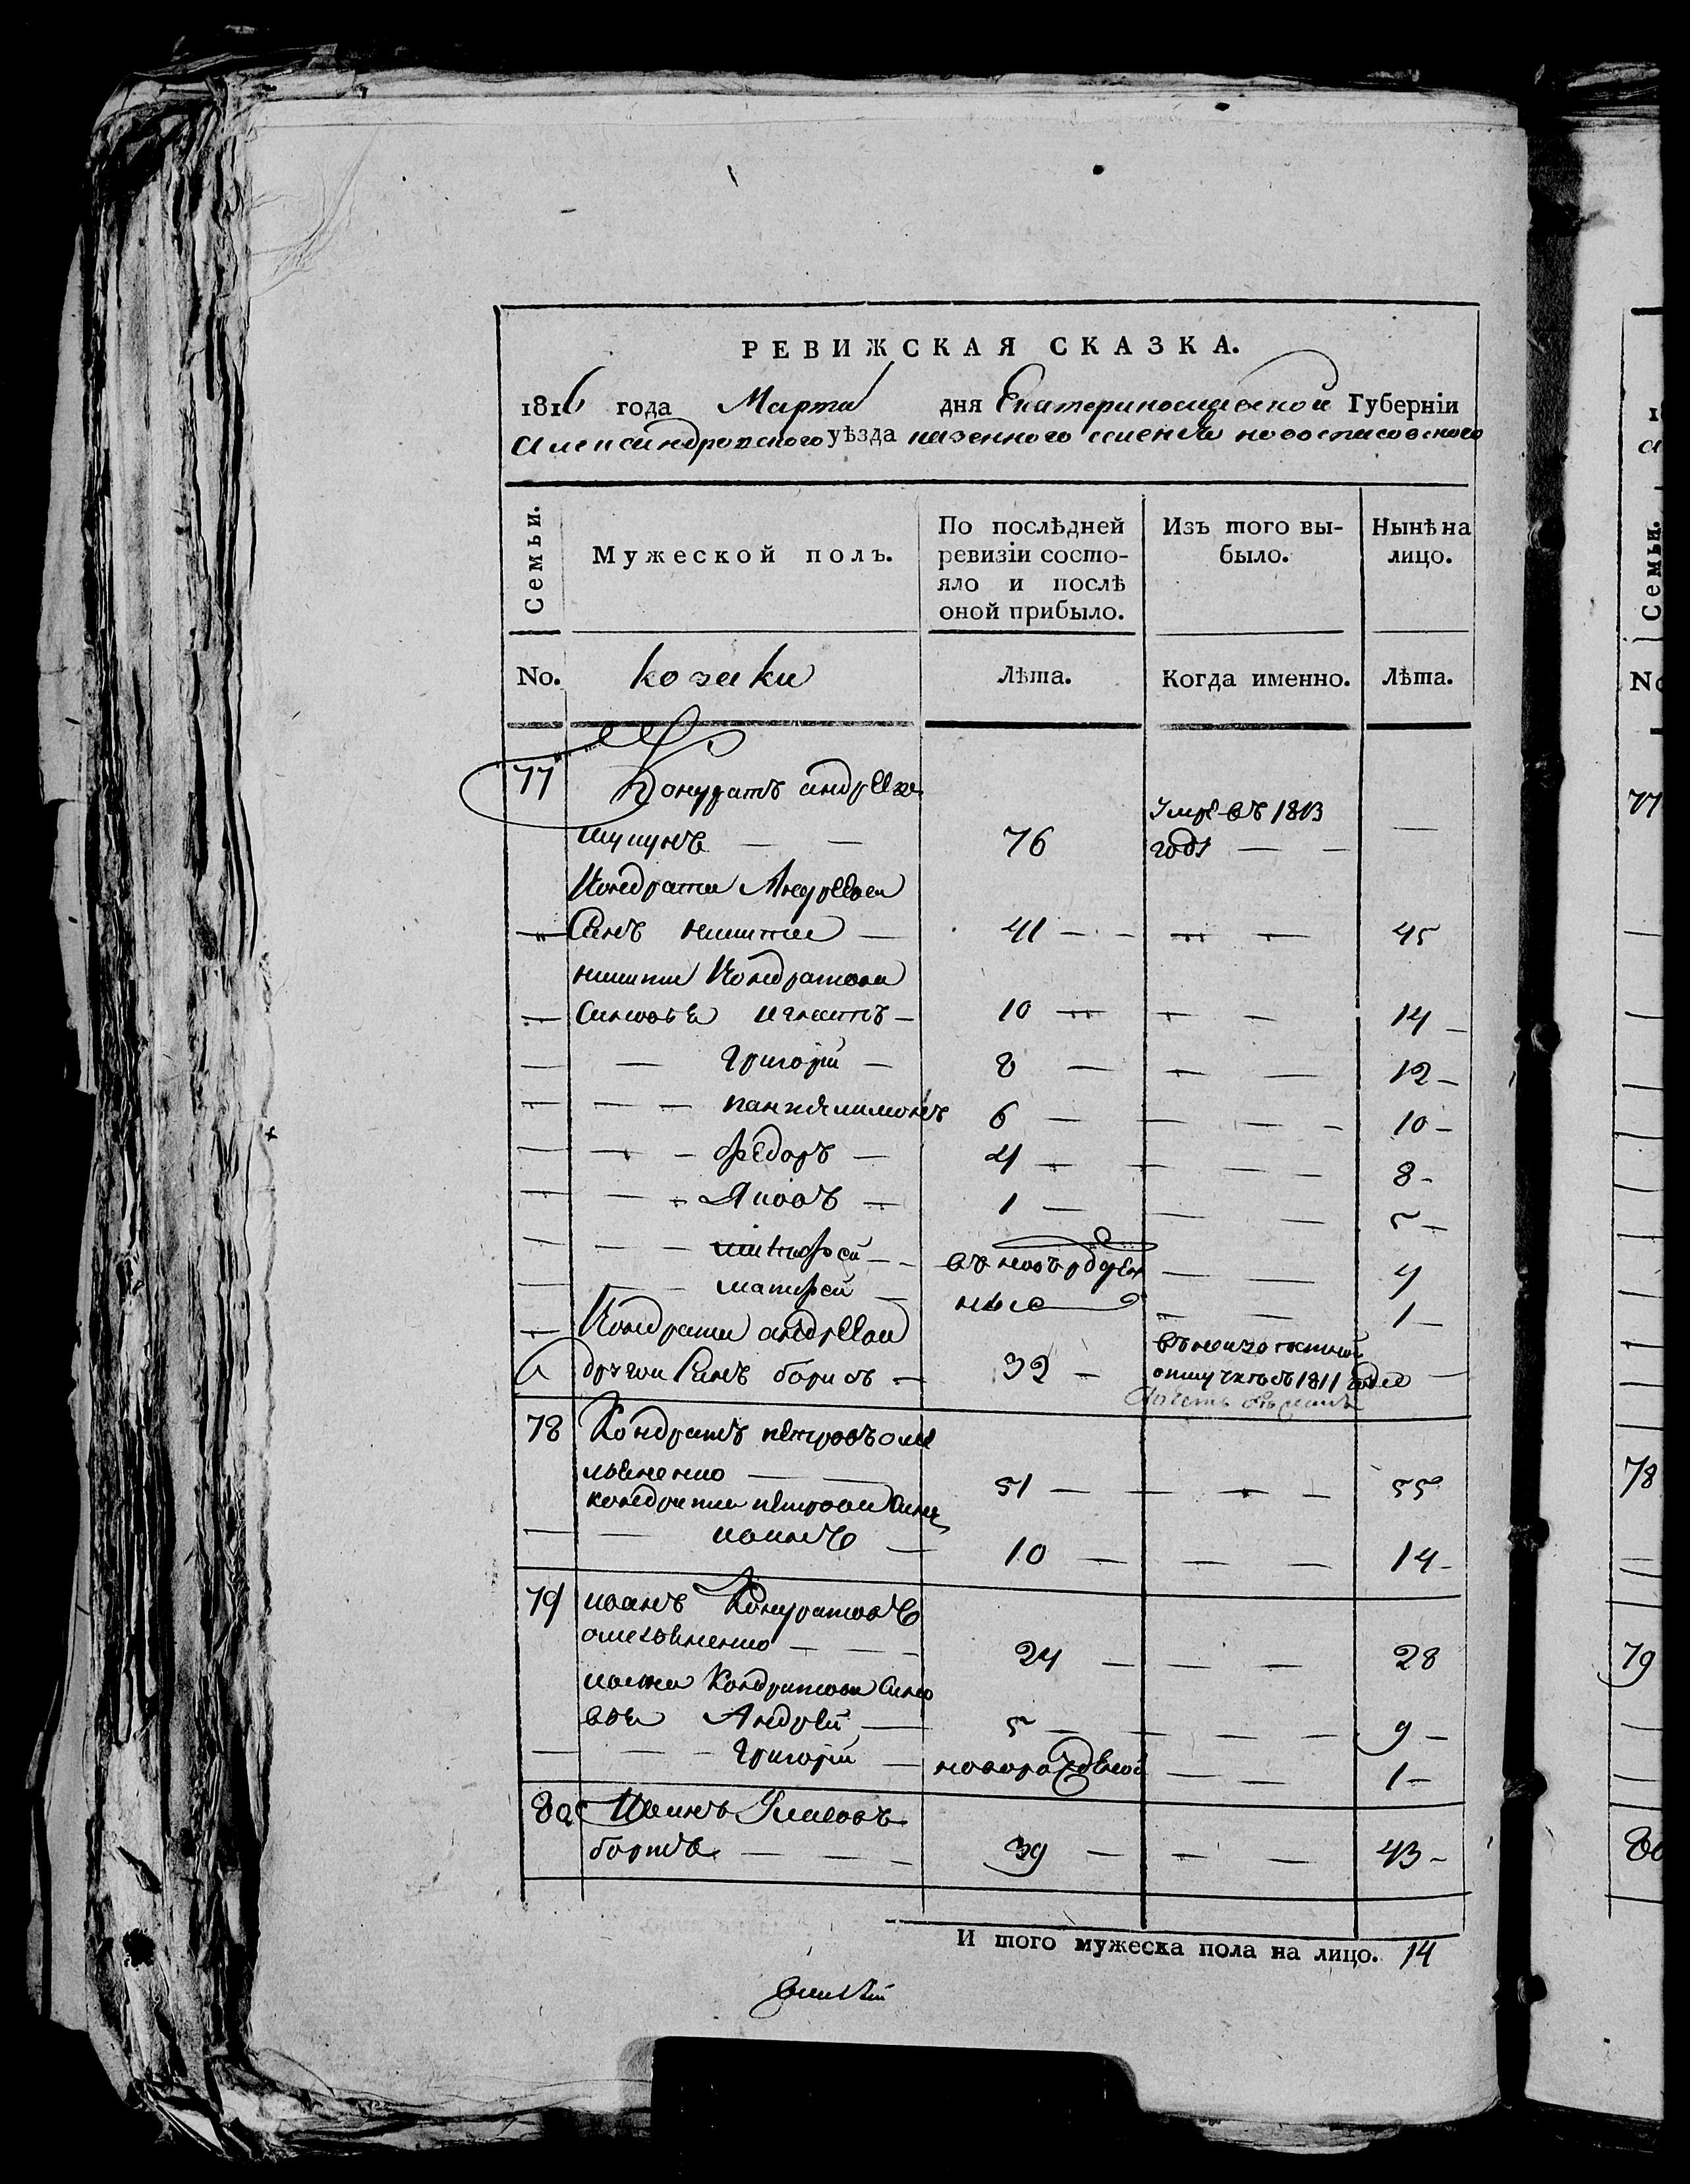 РЕВИЖСКАЯ СКАЗКА.
1816 года Марта дня Екатеринославской Губерніи
Александровского уѣзда казенного селения новоспасовского
Семьи.
Мужеской полъ.
По послѣдней ревизіи состо-
яло и послѣ
оной прибыло.
Изъ того вы-
было.
Нынѣ на
лицо.
No. козаки Лѣта. Когда именно. Лѣта.
77 Кондратъ андреевъ
76 умре въ 1813 —
годѣ — —
Кондрати Андреева
Синъ никита — 41 — — — — 45
никити Кондратова
Синовъя игнатъ — 10 — — — 14 —
— — Григорій — 8 — — — 12 —
— — — пантилимонъ 6 — — — — 10 —
— — — федоръ — 4 — — — — 8 —
— — — Яковъ — 1 — — — 5 —
— — — — — — — 4
— — матфей — ные — — 1 —
— Кондрати андреева
другой Синъ борисъ — 32 — 1811 —
78 Кондратъ петровъ оме
льяненко — — 51 — — — — 55
кондрати петрова Синъ
— — иванъ — 10 — — — 14 —
79 иванъ Кондратовъ
омельяненко — — — 24 — — — 28
ивана Кондратова Сино
въя Андрей — 5 — — — — 9 —
— — — Григорій — новорожденой — — 1 —
80 Иванъ Власовъ
— — — 39 — — — 43 —
И того мужеска пола на лицо. 14
77
78
79
80